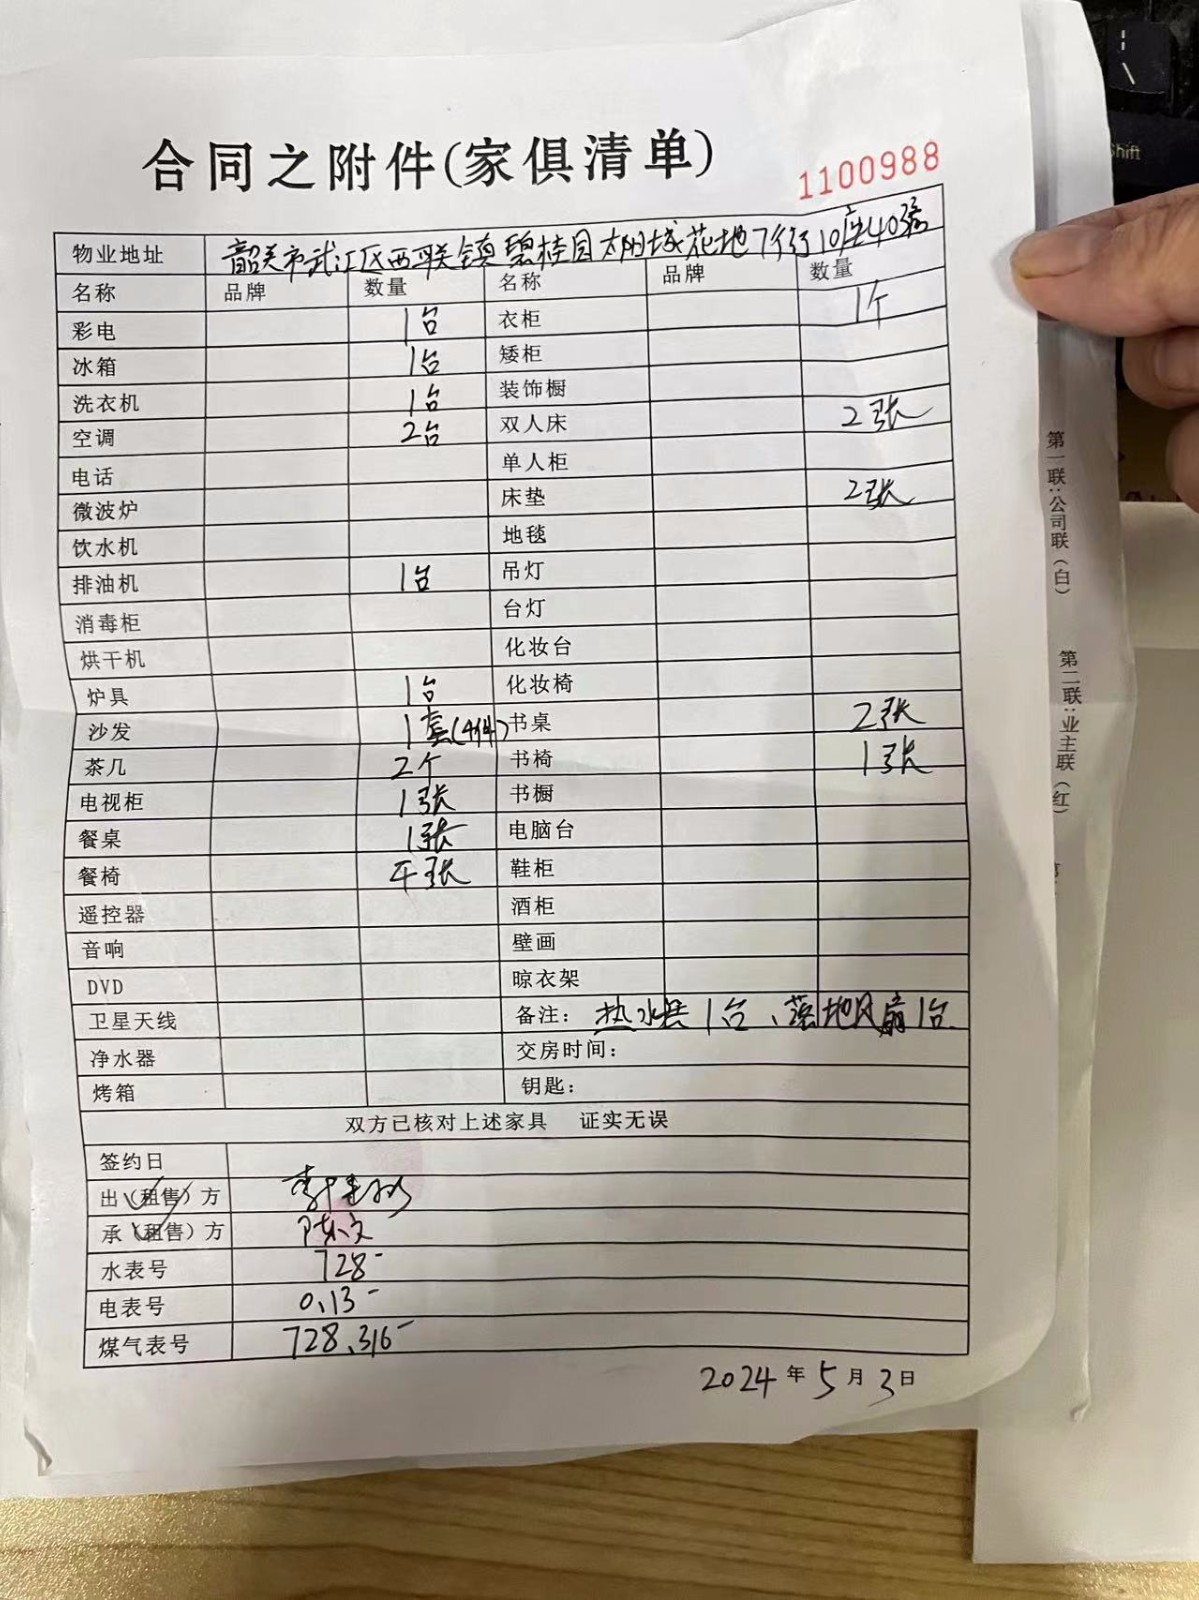 合同之附件(家俱清单)
1100988
物业地址 韶关市武江区西联镇碧桂园太阳城花地7街10座40号
名称 品牌 数量 名称 品牌 数量
彩电 1台 衣柜 1个
冰箱 1台 矮柜
洗衣机 1台 装饰橱
空调 2台 双人床 2张
电话 单人柜
微波炉 床垫 2张
饮水机 地毯
排油机 1台 吊灯
消毒柜 台灯
烘干机 化妆台
炉具 1台 化妆椅
沙发 1套(4件) 书桌 2张
茶几 2个 书椅 1张
电视柜 1张 书橱
餐桌 1张 电脑台
餐椅 4张 鞋柜
遥控器 酒柜
音响 壁画
DVD 晾衣架
卫星天线 备注: 热水器1台、落地风扇1台.
净水器 交房时间:
烤箱 钥匙:
双方已核对上述家具 证实无误
签约日
出(租售)方
承(租售)方
水表号 728-
电表号 0.13-
煤气表号 728.316-
2024年5月3日
第一联:公司联(白)
第二联:业主联(红)
Shift